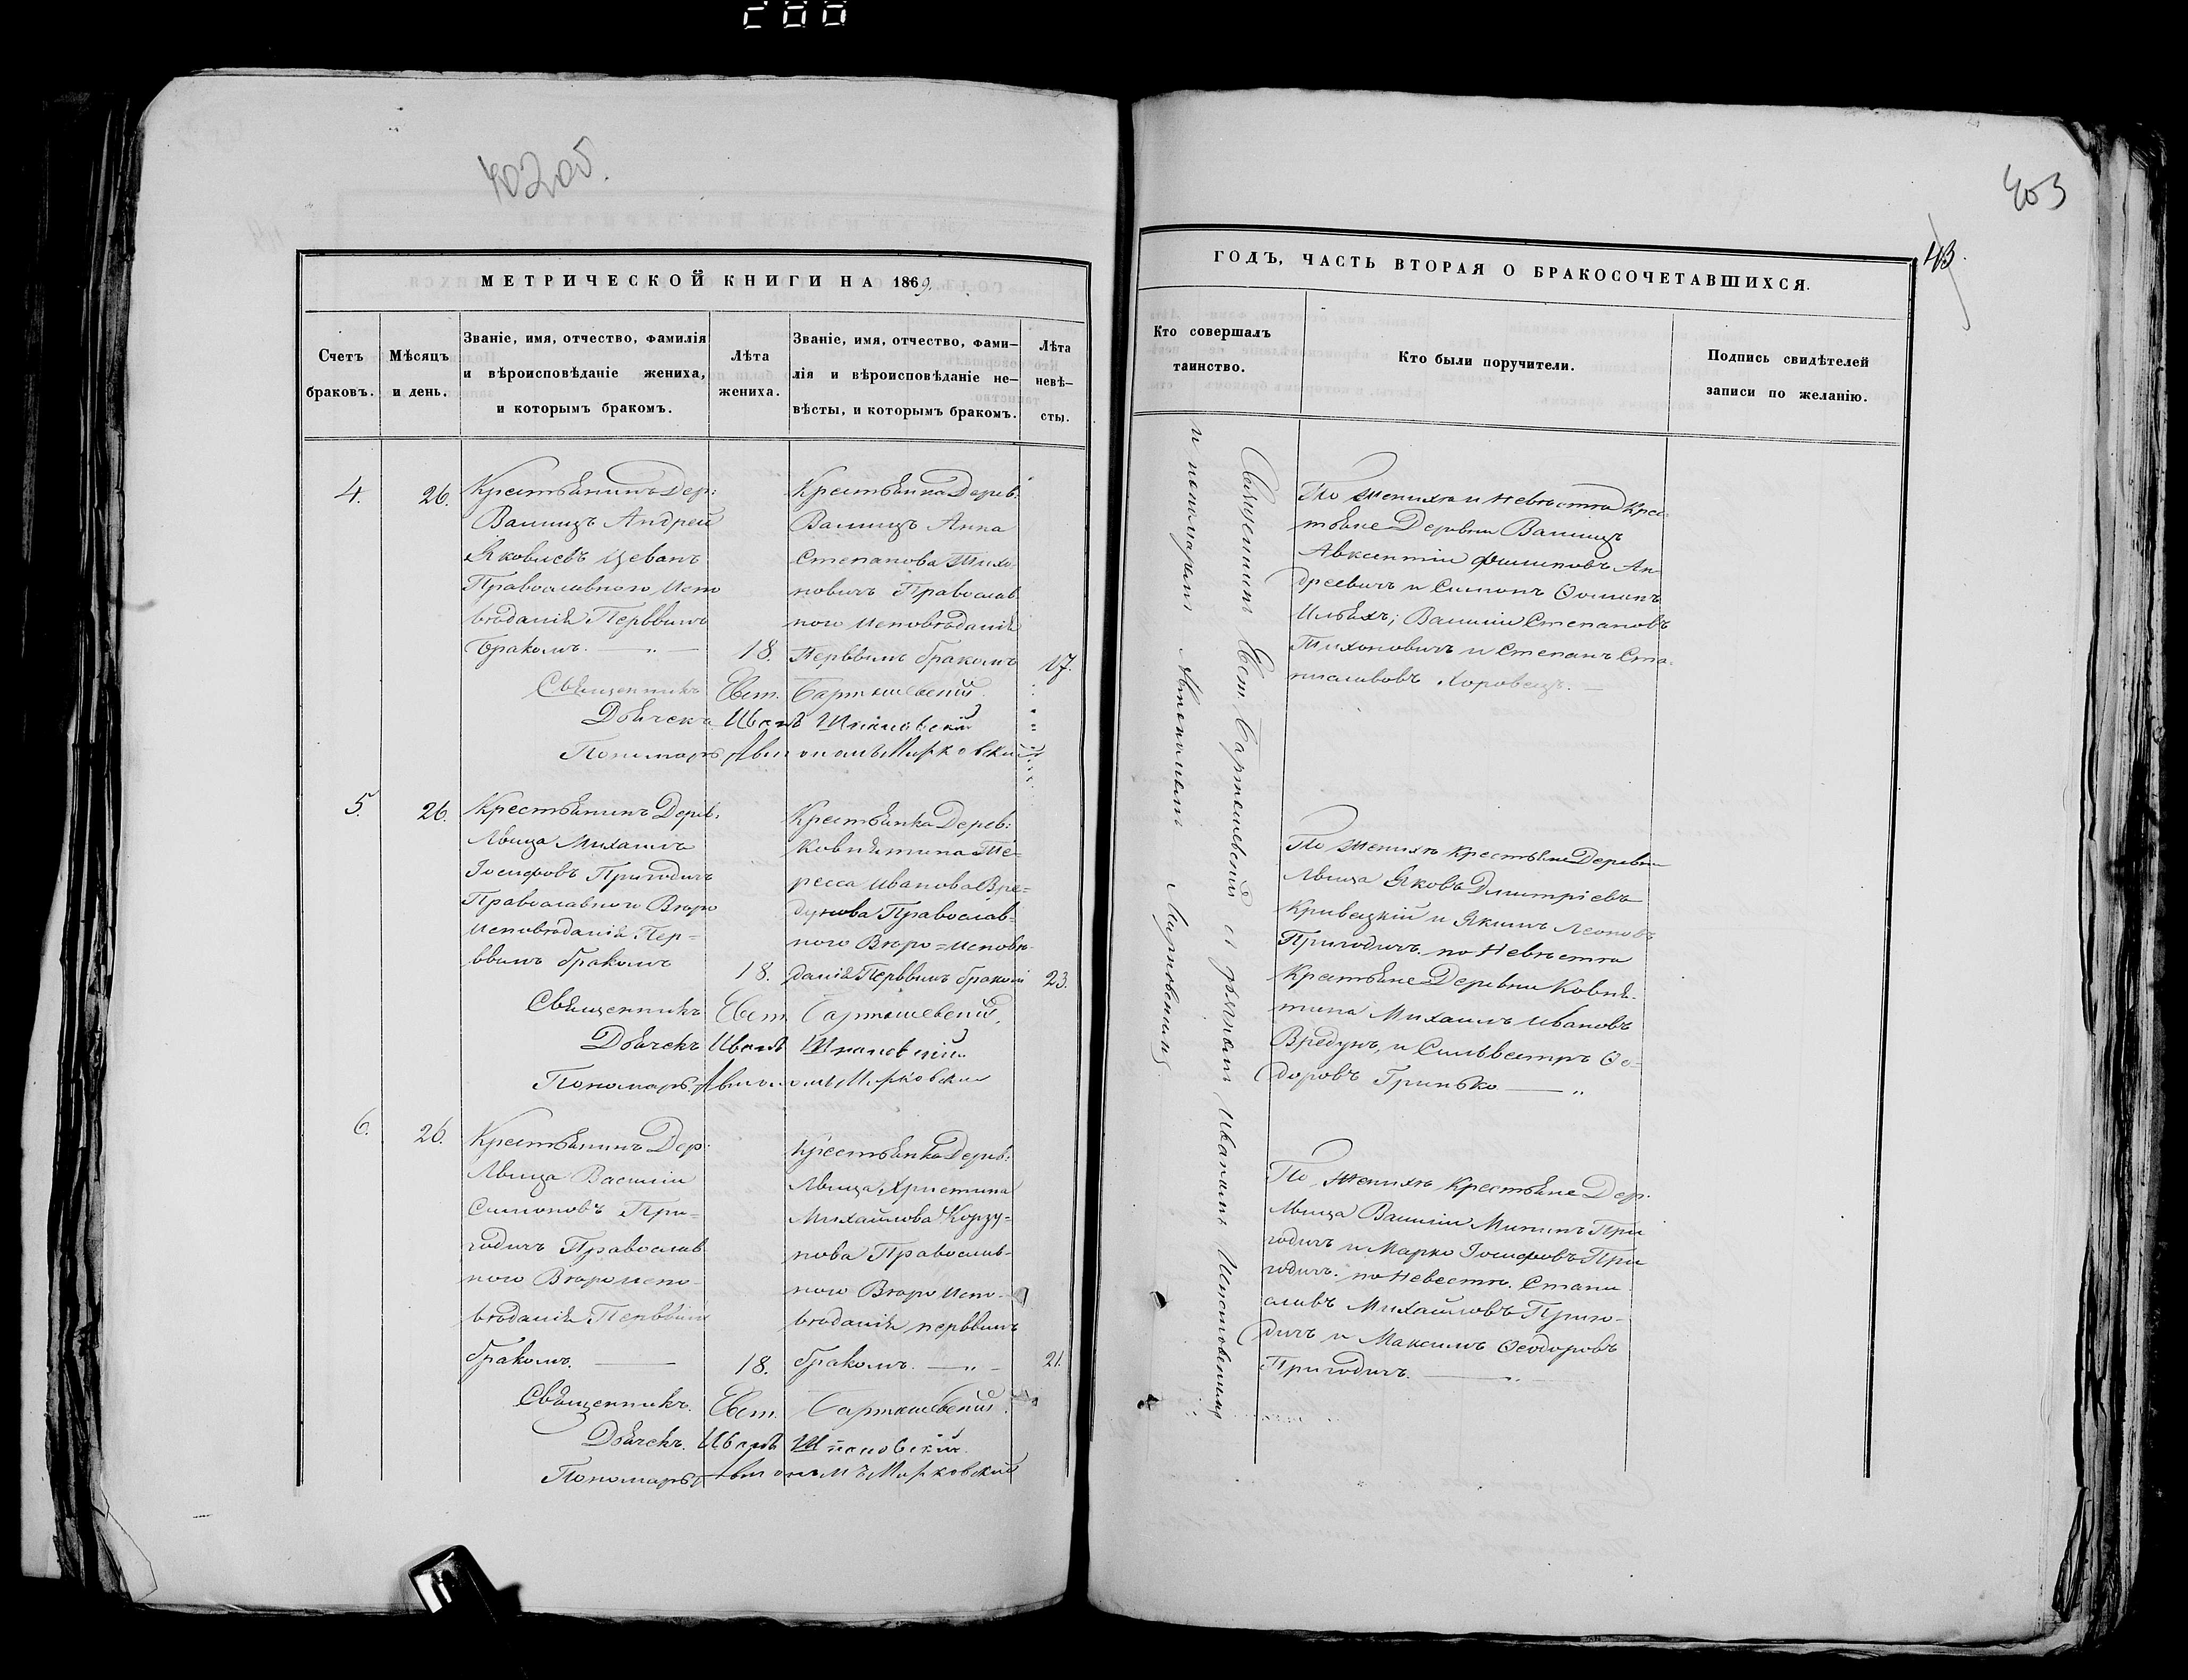 200
402об.
МЕТРИЧЕСКОЙ КНИГИ НА 1869.
Счетъ
браковъ.
Мѣсяцъ
и день.
Званіе, имя, отчество, фамилія
и вѣроисповѣданіе жениха,
и которымъ бракомъ.
Лѣта
жениха.
Званіе, имя, отчество, фами–
лія и вѣроисповѣданіе не–
вѣсты, и которымъ бракомъ.
Лѣта
невѣ–
сты.
4.
26.
Крестьянинъ Дер:
Андрей
Яковлевъ Цеванъ
Православного Испо
вѣданія Перввимъ
бракомъ.
18.
Крестьянка Дерев:
Анна
Степанова Тихо
новичъ Православ
ного Исповѣданія
Перввимъ бракомъ
17.
Священникъ Евст. Бартошевскій
Дьячекъ Иванъ
Пономарь Мирковскій
5.
26.
Крестьянинъ Дерев.
Лвица Михаилъ
Іосифовъ Пригодичъ
Православного Вѣро
исповѣданія Пер=
ввимъ бракомъ
18.
Крестьянка Дерев:
Ковнятина Те=
ресса Иванова Вре=
дунова Православ=
ного Вѣро=исповѣ=
данія Перввимъ бракомъ
23.
Священникъ Евст. Бартошевскій
Дьячекъ Иванъ
Пономарь Мирковскій
6.
26.
Крестьянинъ Дер.
Лвица Василій
Симоновъ При=
годичъ Православ
ного Вѣроиспо=
вѣданія Перввимъ
бракомъ.
18.
Крестьянка Дерев:
Лвица Христина
Михайлова Корзу=
нова Православ-
ного Вѣроиспо-
вѣданія перввимъ
бракомъ.
21.
Священникъ. Евст. Бартошевскій
Дьячекъ. Иванъ
Пономарь Мирковскій
403
43.
ГОДЪ, ЧАСТЬ ВТОРАЯ О БРАКОСОЧЕТАВШИХСЯ.
Кто совершалъ
таинство.
Кто были поручители.
Подпись свидѣтелей
записи по желанію.
Священникъ Евст. Бартошевскій съ дьячкомъ Иваномъ
и пономаремъ Мирковскимъ
По Женихѣ и Невѣстѣ Крес
тьяне Деревни
Авксентій Филиповъ Ан
дреевичъ и Симонъ Ѳоминъ
Ильяхъ; Василій Степановъ
Тихоновичъ и Степанъ Ста
ниславовъ Хоровецъ.
По Женихѣ Крестьяне Деревни
Лвица Яковъ Дмитріевъ
Кривецкій и Якимъ Леоновъ
Пригодичъ. по Невѣстѣ
Крестьяне Деревни Ковня
тина Михаилъ Ивановъ
Вредунъ, и Сильвестръ Ѳе=
доровъ Гринько
По Женихѣ Крестьяне Дер.
Лвица Василій Мининъ При
годичъ и Марко Іосифовъ При
годичъ. по Невестѣ. Стани
славъ Михайловъ Приго-
дичъ и Максимъ Ѳеодоровъ
Пригодичъ.